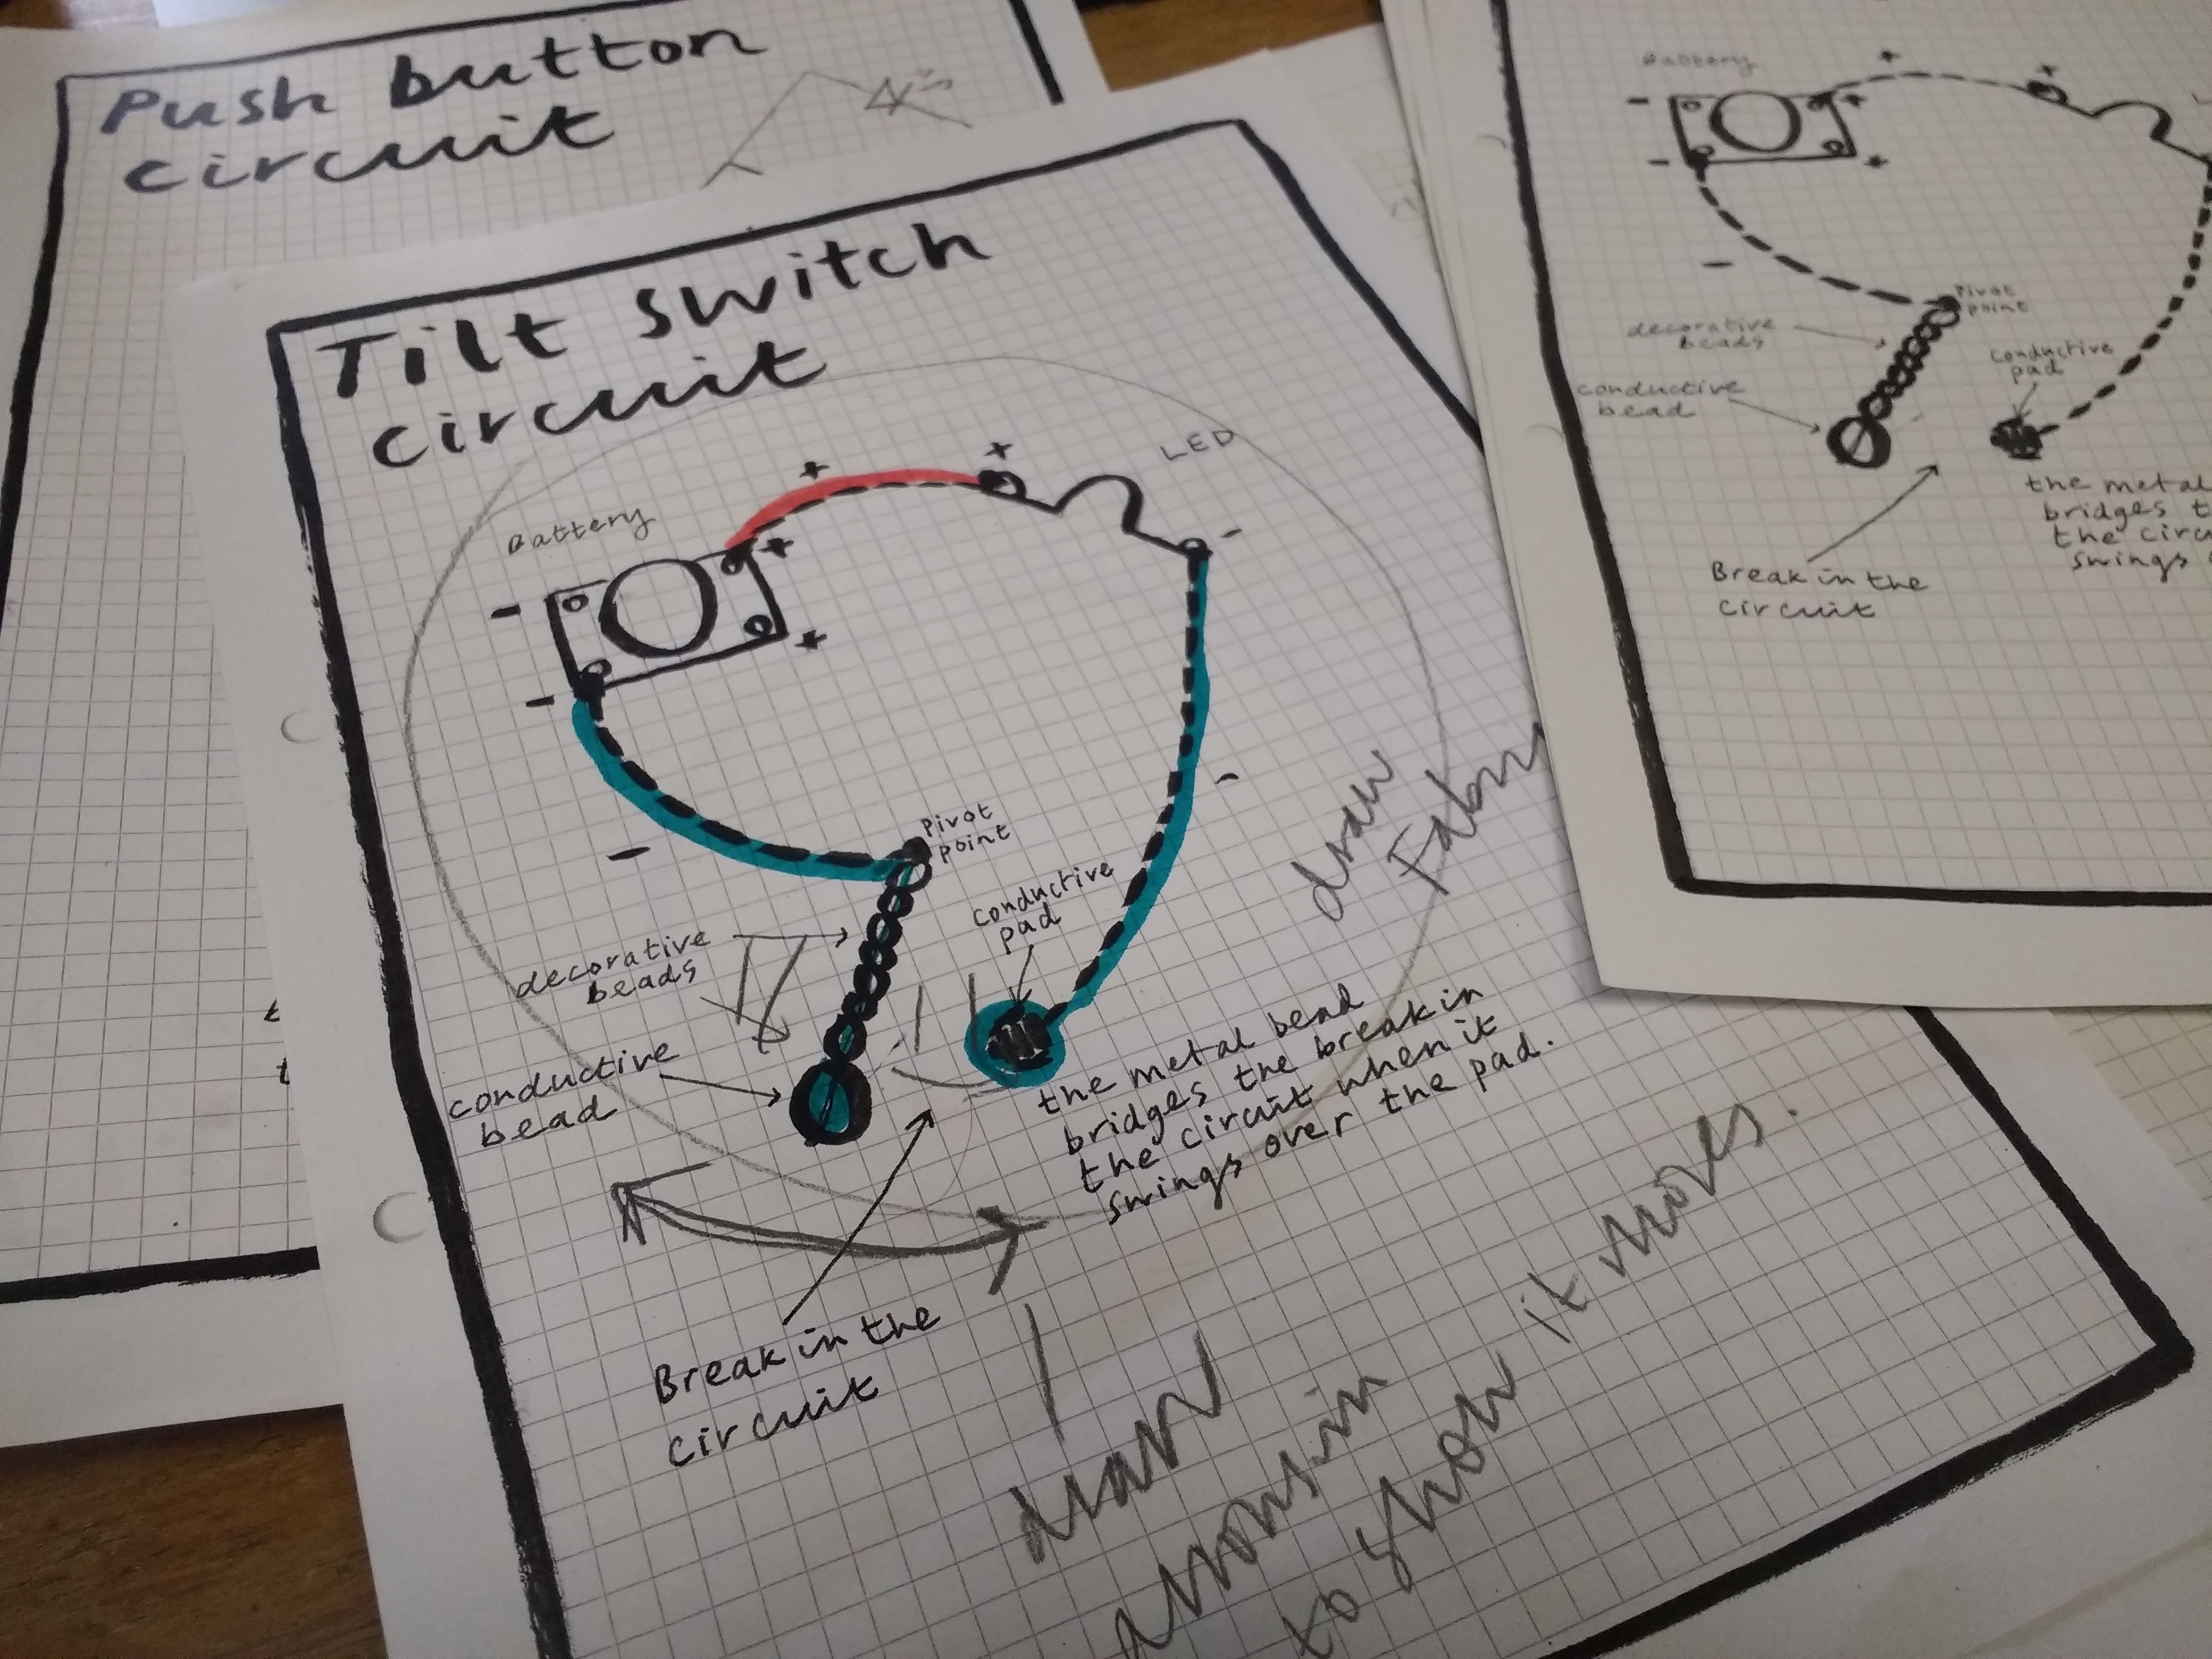 Push button
circuit
Tilt switch
circuit
Battery
+
+
LED
+
-
-
+
-
-
-
Pivot
point
conductive
pad
decorative
beads
conductive
bead
the metal bead
bridges the break in
the circuit when it
swings over the pad.
Break in the
circuit
draw
draw
to show it moves.
Battery
+
+
-
+
-
+
-
Pivot
point
decorative
beads
conductive
pad
conductive
bead
the metal
bridges
the
swings
Break in the
circuit